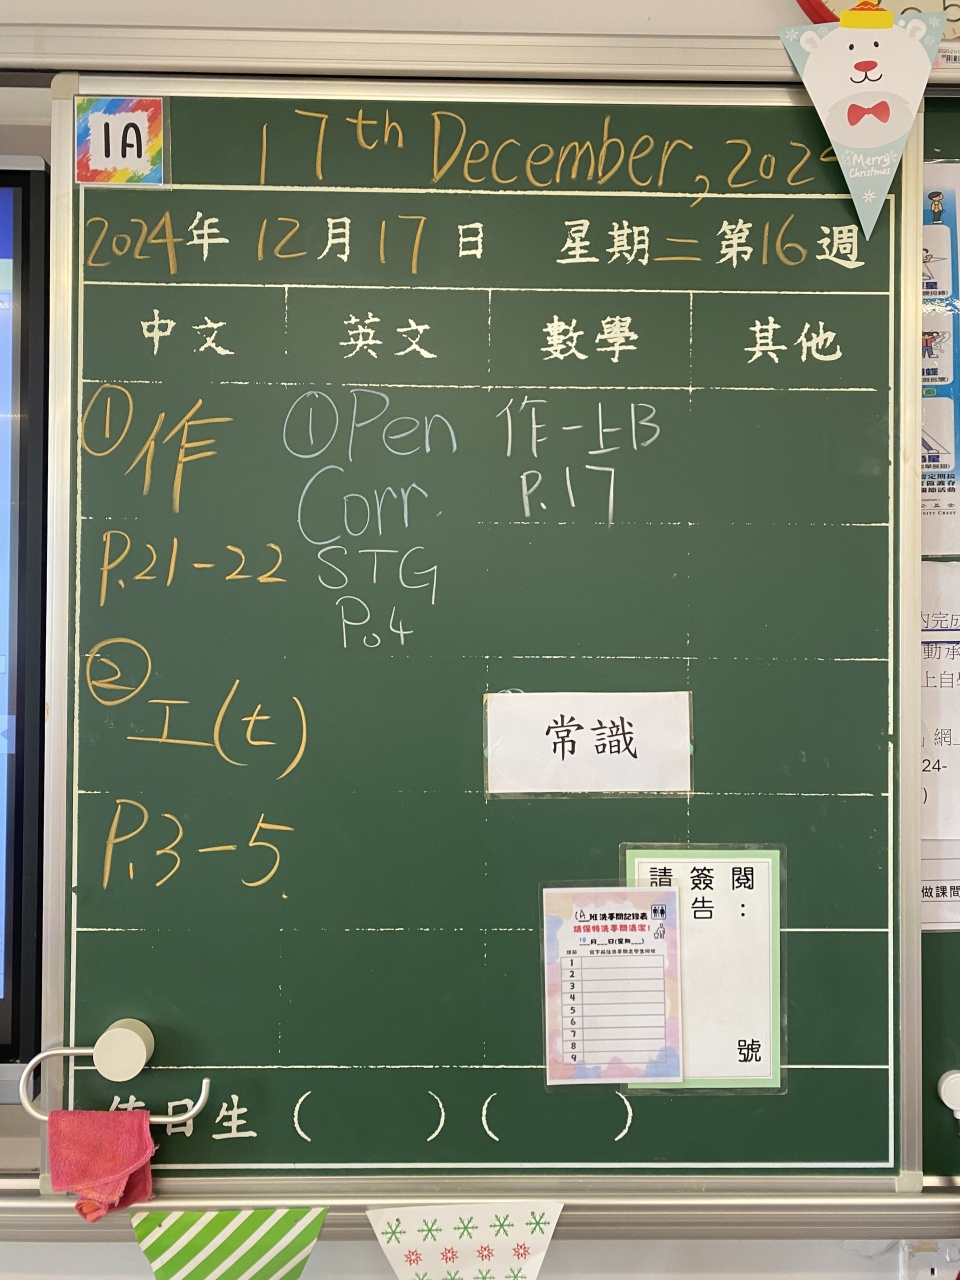 1A
17th December, 202
2024年 12月17日 星期二 第16週
中文 英文 數學 其他
①作
P.21-22
②工(t)
P.3-5
①Pen
Corr.
STG
P.4
作一上B
P.17
常識
請簽閱：
告
號
1A班洗手間記錄表
請保持洗手間清潔！
10月___日(星期___)
1
2
3
4
5
6
7
8
9
值日生 ( ) ( )
Merry
Christmas
內完成
動承
上自學
」網上
24-
做課間